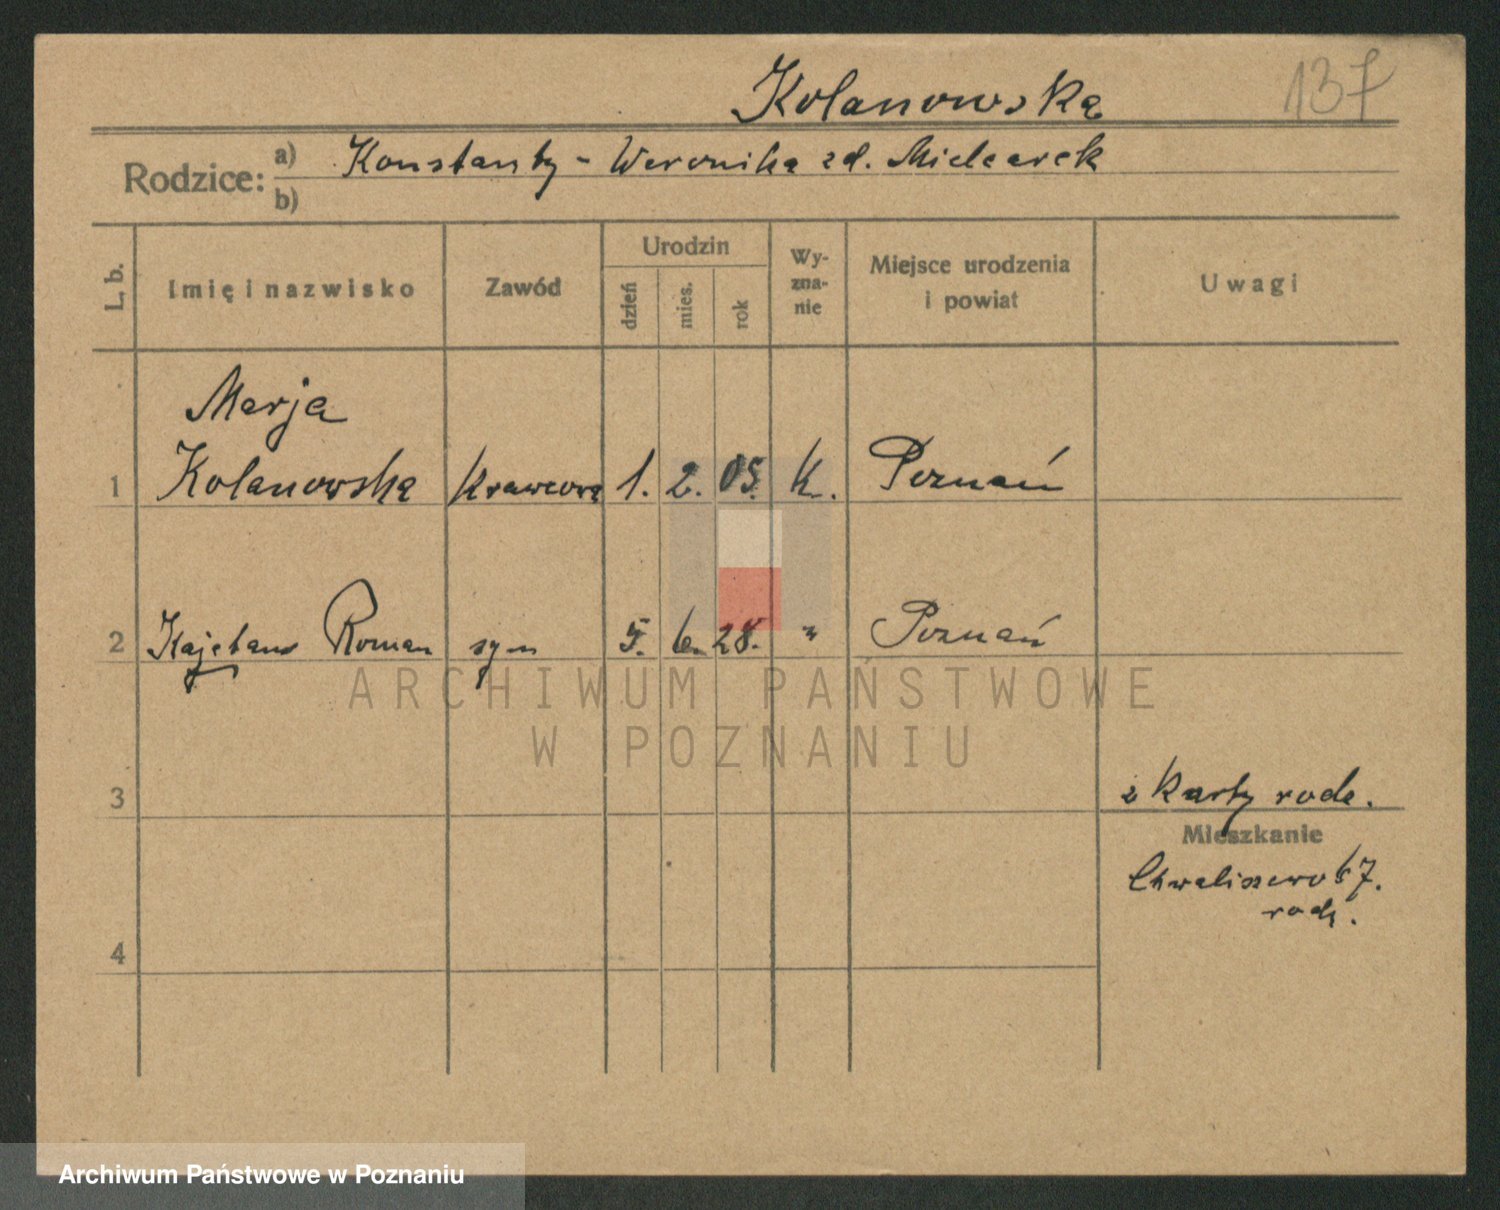 137
Kolanowska
Rodzice: a) Konstanty - Weronika zd. Mielcarek
b)
L. b.
Imię i nazwisko
Zawód
Urodzin
dzień
mies.
rok
Wy-
zna-
nie
Miejsce urodzenia
i powiat
Uwagi
Marja
1 Kolanowska Krawcowa 1. 2. 05. k. Poznań
2 Kajetan Roman syn 5. 6. 28. " Poznań
ARCHIWUM PAŃSTWOWE
W POZNANIU
3
z karty rodz.
Mieszkanie
Chwaliszewo 67.
rodz.
4
Archiwum Państwowe w Poznaniu